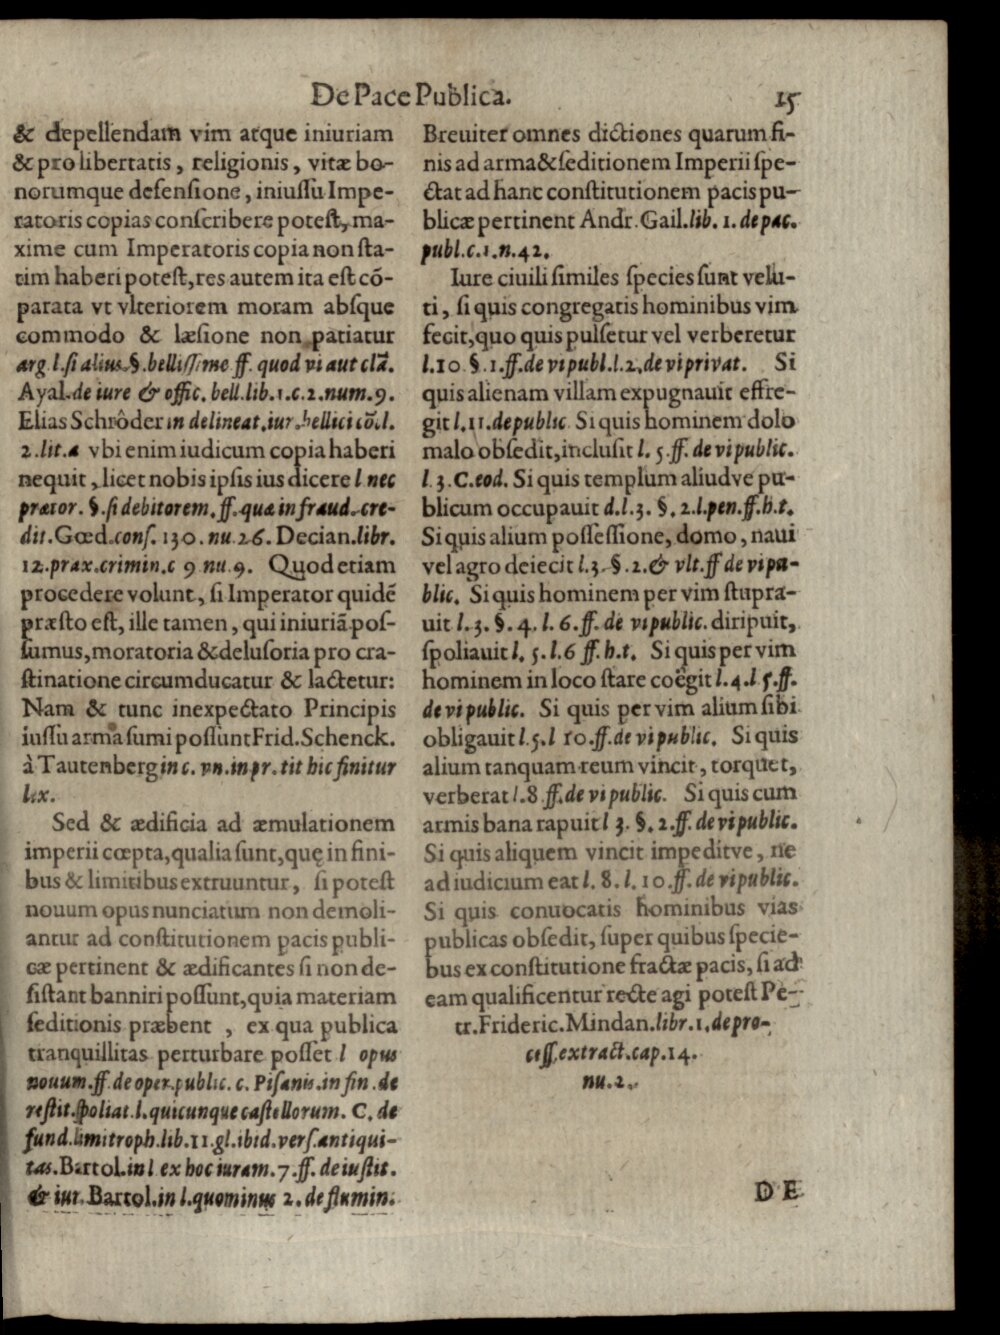 De Pace Publica. 15
& depellendam vim atque iniuriam
& pro libertatis, religionis, vitæ bo-
norumque defensione, iniussu Impe-
ratoris copias conscribere potest, ma-
xime cum Imperatoris copia non sta-
tim haberi potest, res autem ita est cō-
parata vt vlteriorem moram absque
commodo & læsione non patiatur
arg l. si alius. §. bellissime ff. quod vi aut clā.
Ayal. de iure & offic. bell. lib. 1. c. 2. num. 9.
Elias Schrôder in delineat. iur. bellici cōcl.
2. lit. a vbi enim iudicum copia haberi
nequit, licet nobis ipsis ius dicere l nec
prator. §. si debitorem. ff. qua in fraud. cre-
dit. Gœd. cons. 130. nu. 26. Decian. libr.
12. prax. crimin. c 9 nu. 9. Quod etiam
procedere volunt, si Imperator quidē
præsto est, ille tamen, qui iniuriā pos-
sumus, moratoria & delusoria pro cra-
stinatione circumducatur & lactetur:
Nam & tunc inexpectato Principis
iussu arma sumi possunt Frid. Schenck.
à Tautenberg in c. vn. in pr. tit hic finitur
lex.
Sed & ædificia ad æmulationem
imperii cœpta, qualia sunt, quę in fini-
bus & limitibus extruuntur, si potest
nouum opus nunciatum non demoli-
antur ad constitutionem pacis publi-
cæ pertinent & ædificantes si non de-
sistant banniri possunt, quia materiam
seditionis præbent , ex qua publica
tranquillitas perturbare posset l opus
nouum. ff. de oper. public. c. Pisanis. in fin. de
restit. spoliat. l. quicunque castellorum. C. de
fund. limitroph. lib. 11. gl. ibid. vers. antiqui-
tas. Bartol. in l ex hoc iuram. 7. ff. de iustit.
& iur. Bartol. in l. quominus 2. de flumin.
Breuiter omnes dictiones quarum fi-
nis ad arma & seditionem Imperii spe-
ctat ad hanc constitutionem pacis pu-
blicæ pertinent Andr. Gail. lib. 1. de pac.
publ. c. 1. n. 42.
Iure ciuili similes species sunt velu-
ti, si quis congregatis hominibus vim
fecit, quo quis pulsetur vel verberetur
l. 10 §. 1. ff. de vi publ. l. 2. de vi privat. Si
quis alienam villam expugnauit effre-
git l. 11. de public Si quis hominem dolo
malo obsedit, inclusit l. 5. ff. de vi public.
l. 3. C. eod. Si quis templum aliudve pu-
blicum occupauit d. l. 3. §. 2. l. pen. ff. h. t.
Si quis alium possessione, domo, naui
vel agro deiecit l. 3. §. 2. & vlt. ff de vi pu-
blic. Si quis hominem per vim stupra-
uit l. 3. §. 4. l. 6. ff. de vi public. diripuit,
spoliauit l. 5. l. 6 ff. h. t. Si quis per vim
hominem in loco stare coëgit l. 4. l 5. ff.
de vi public. Si quis per vim alium sibi
obligauit l. 5. l 10. ff. de vi public. Si quis
alium tanquam reum vincit, torquet,
verberat l. 8 ff. de vi public. Si quis cum
armis bana rapuit l 3. §. 2. ff. de vi public.
Si quis aliquem vincit impeditve, ne
ad iudicium eat l. 8. l. 10. ff. de vi public.
Si quis conuocatis hominibus vias
publicas obsedit, super quibus specie-
bus ex constitutione fractæ pacis, si ad
eam qualificentur recte agi potest Pe-
tr. Frideric. Mindan. libr. 1. de pro-
cess. extract. cap. 14.
nu. 2.
DE